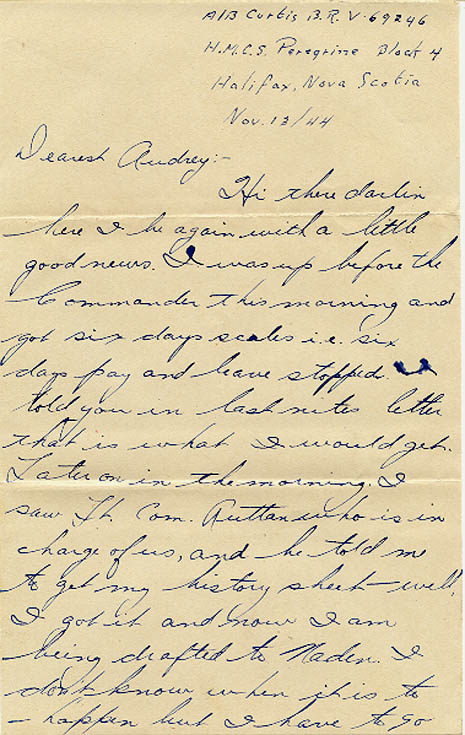 A/B Curtis B.R. V-69246
H.M.C.S. Peregrine Block 4
Halifax, Nova Scotia
Nov. 13/44
Dearest Audrey:-
Hi there darlin
here I be again with a little
good news. I was up before the
Commander this morning and
got six days scales i.e. six
days pay and leave stopped. I
told you in last nites letter
that is what I would get.
Later on in the morning. I
saw Lt. Com. Ruttan who is in
charge of us, and he told me
to get my history sheet - well,
I got it and now I am
being drafted to Naden. I
don't know when it is to
- happen but I have to go